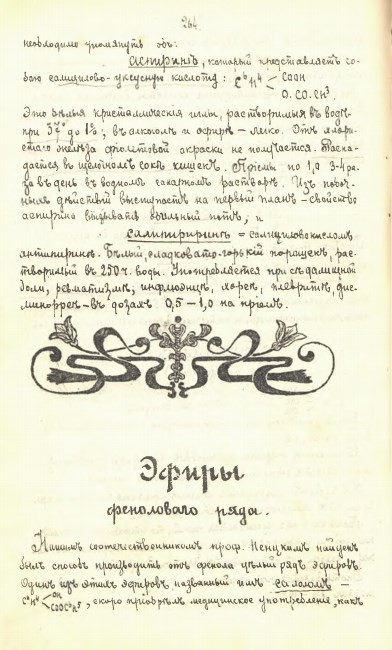 264.
необходимо упомянуть объ:
аспиринѣ, который представляетъ со-
бою салицилово-уксусную кислоту: C⁶H⁴ COOH
O.CO.CH³
Это бѣлыя кристаллическія иглы, растворимыя въ водѣ
при 37° до 1%; въ алкоголѣ и эфирѣ – легко. Отъ хлори-
стаго желѣза фіолетовой окраски не получается. Распа-
дается въ щелочномъ сокѣ кишекъ. Пріемы по 1,0 3-4 ра-
за въ день въ водномъ сахарномъ растворѣ. Изъ побоч-
ныхъ дѣйствій выступаетъ на первый планъ – свойство
аспирина вызывать обильный потъ, и
салипиринъ = салициловокислый
антипиринъ. Бѣлый, сладковато-горькій порошекъ, рас-
творимый въ 250 ч. воды. Употребляется при сѣдалищной
боли, ревматизмѣ, инфлюэнцѣ, хореѣ, плевритѣ, дис-
меноррѣе – въ дозахъ 0,5 – 1,0 на пріемъ.
Эфиры
феноловаго ряда.
Нашимъ соотечественникомъ проф. Ненцкимъ найденъ
былъ способъ производить отъ фенола цѣлый рядъ эфировъ.
Одинъ изъ этихъ эфировъ названный имъ салоломъ –
C⁶H⁴ OH COOC⁶H⁵, скоро пріобрѣлъ медицинское употребленіе, какъ